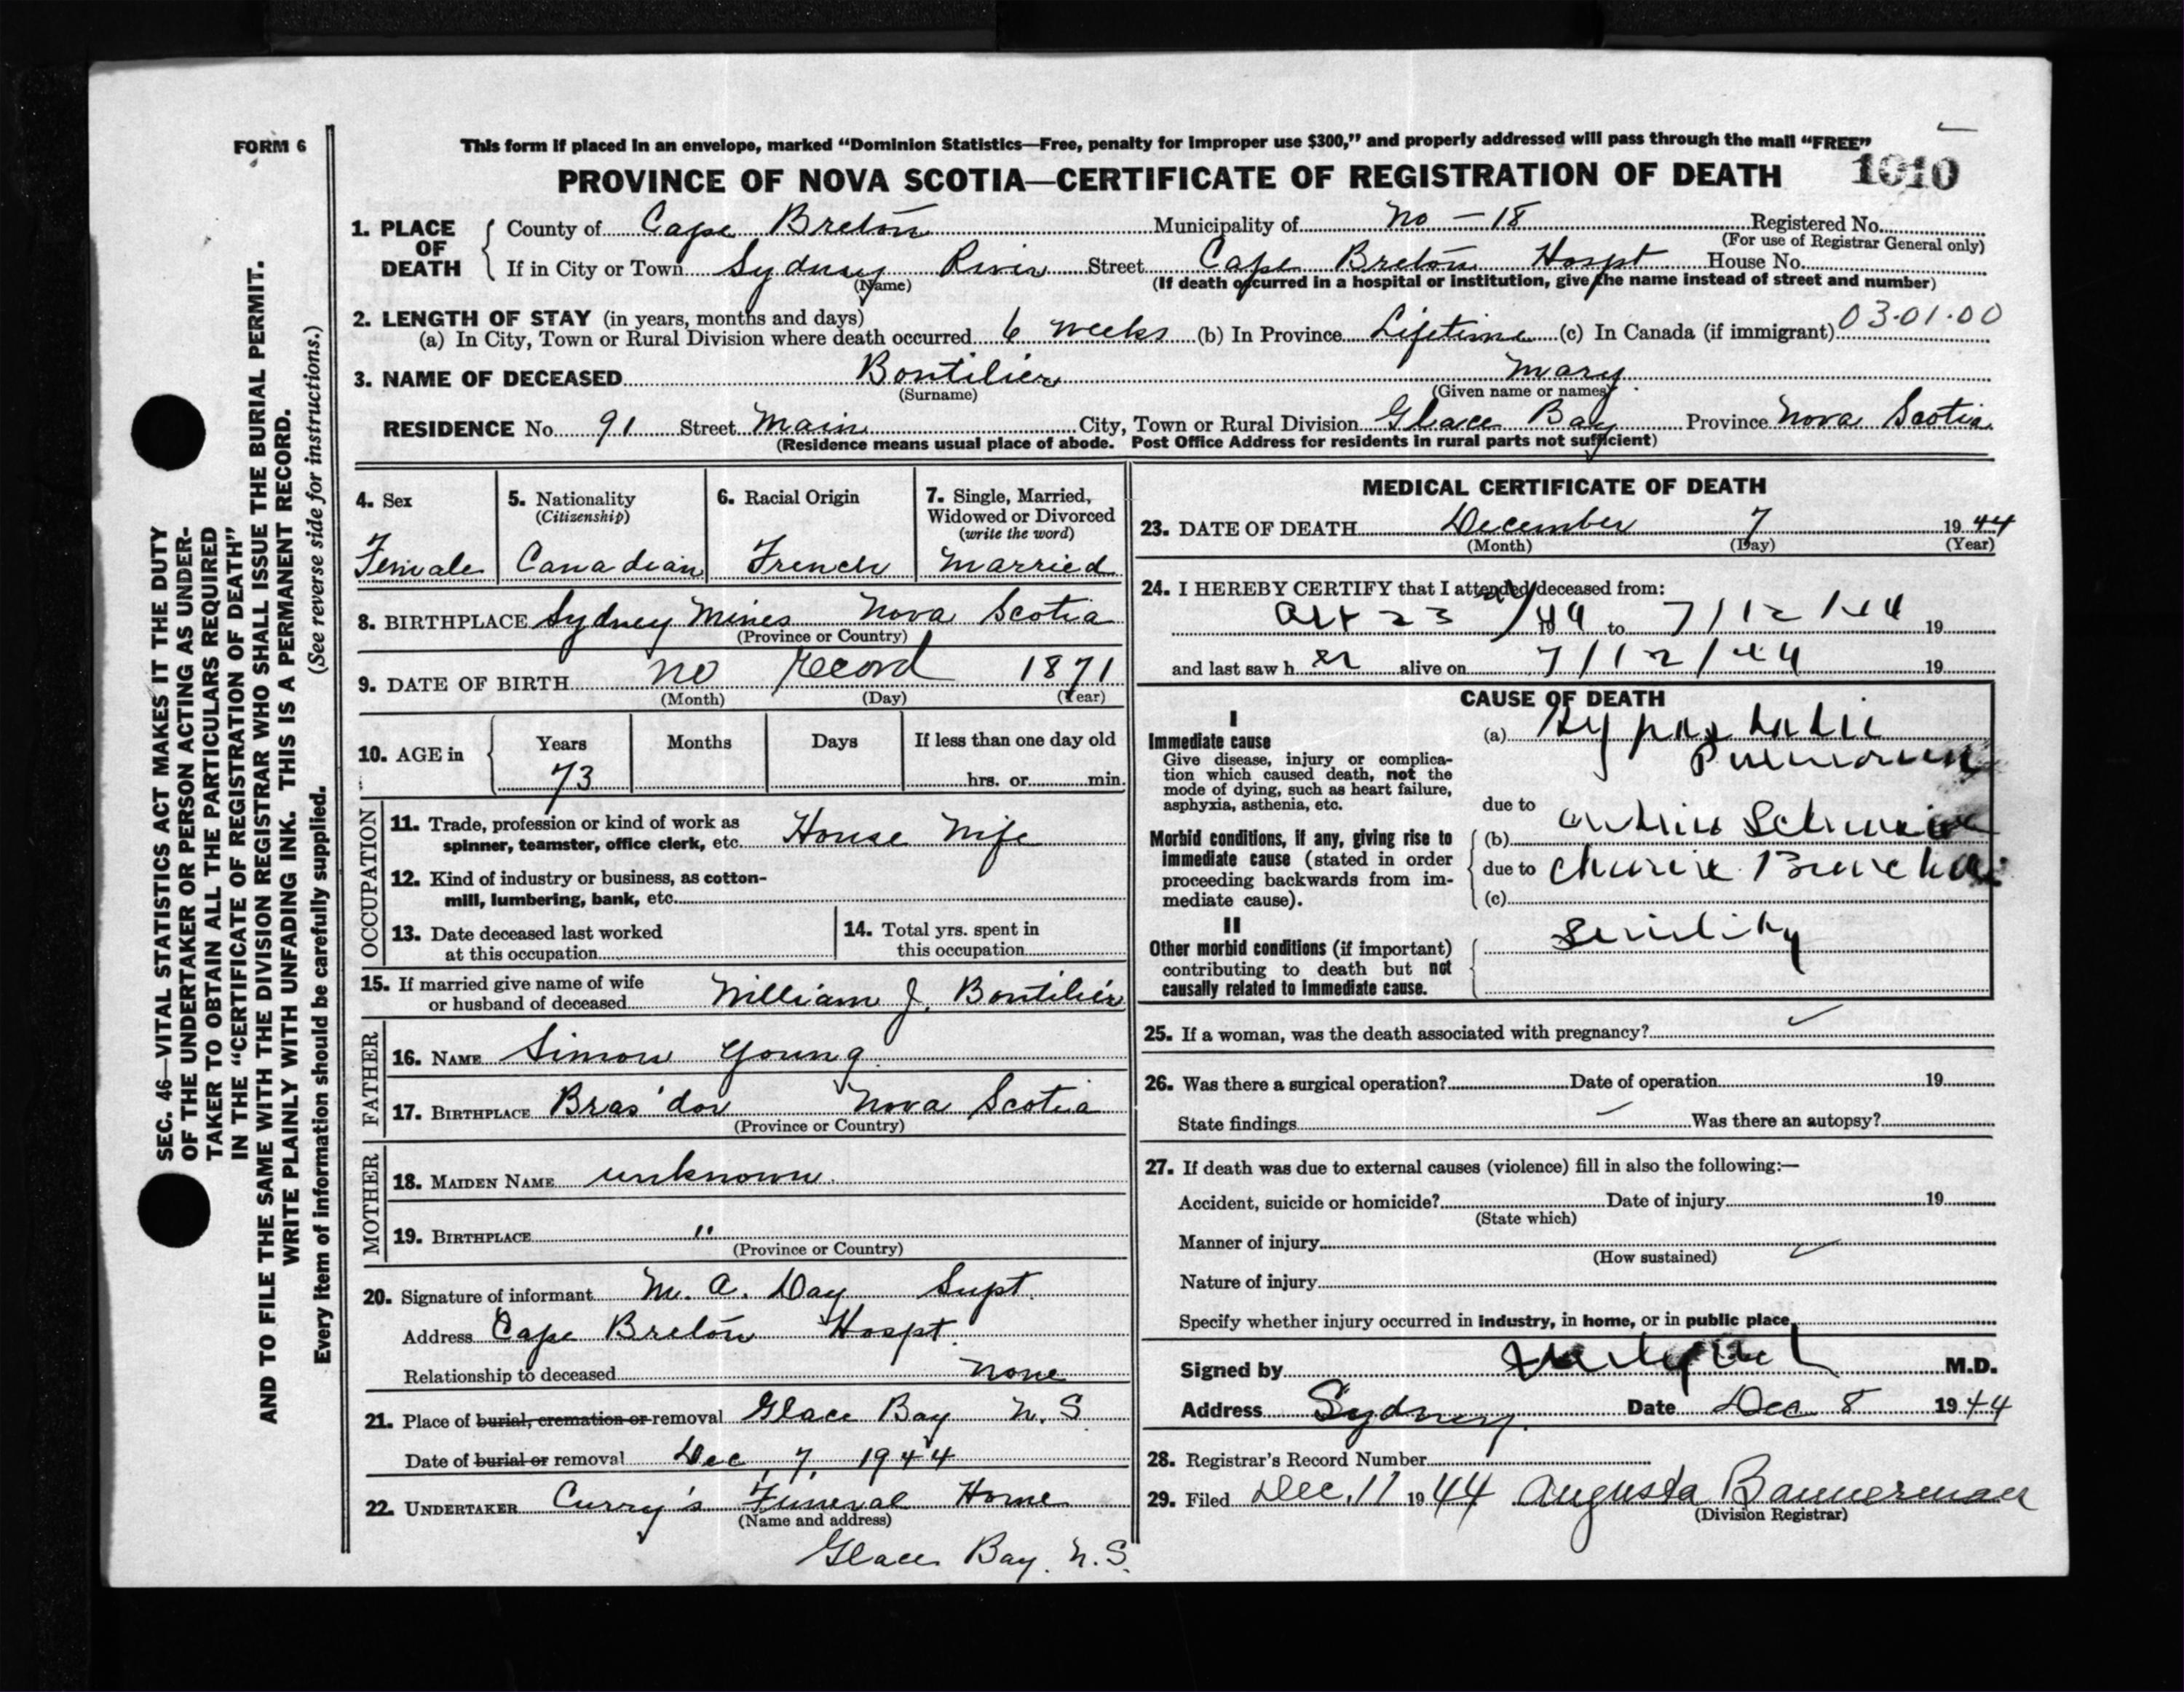 FORM 6
This form if placed in an envelope, marked "Dominion Statistics—Free, penalty for improper use $300," and properly addressed will pass through the mail "FREE"
PROVINCE OF NOVA SCOTIA—CERTIFICATE OF REGISTRATION OF DEATH 1010
1. PLACE OF DEATH
County of Cape Breton Municipality of No - 18 Registered No.
(For use of Registrar General only)
If in City or Town Sydney River Street Cape Breton Hospt House No.
(Name) (If death occurred in a hospital or institution, give the name instead of street and number)
2. LENGTH OF STAY (in years, months and days) 03.01.00
(a) In City, Town or Rural Division where death occurred 6 weeks (b) In Province Lifetime (c) In Canada (if immigrant)
3. NAME OF DECEASED Boutilier Mary
(Surname) (Given name or names)
RESIDENCE No. 91 Street Main City, Town or Rural Division Glace Bay Province Nova Scotia
(Residence means usual place of abode. Post Office Address for residents in rural parts not sufficient)
4. Sex
Female
5. Nationality
(Citizenship)
Canadian
6. Racial Origin
French
7. Single, Married,
Widowed or Divorced
(write the word)
Married
8. BIRTHPLACE Sydney Mines Nova Scotia
(Province or Country)
9. DATE OF BIRTH no record 1871
(Month) (Day) (Year)
10. AGE in
Years Months Days If less than one day old
73 hrs. or min.
OCCUPATION
11. Trade, profession or kind of work as
spinner, teamster, office clerk, etc. House Wife
12. Kind of industry or business, as cotton-
mill, lumbering, bank, etc.
13. Date deceased last worked
at this occupation
14. Total yrs. spent in
this occupation
15. If married give name of wife
or husband of deceased William J. Boutilier
FATHER
16. NAME Simon Young
17. BIRTHPLACE Bras'dor Nova Scotia
(Province or Country)
MOTHER
18. MAIDEN NAME unknown
19. BIRTHPLACE "
(Province or Country)
20. Signature of informant M. A. Day Supt.
Address Cape Breton Hospt.
Relationship to deceased none
21. Place of burial, cremation or removal Glace Bay N. S
Date of burial or removal Dec 7, 1944
22. UNDERTAKER Curry's Funeral Home
(Name and address)
Glace Bay. N.S.
MEDICAL CERTIFICATE OF DEATH
23. DATE OF DEATH December 7 1944
(Month) (Day) (Year)
24. I HEREBY CERTIFY that I attended deceased from:
Oct 23 /44 to 7/12/44 19
and last saw her alive on 7/12/44 19
CAUSE OF DEATH
I
Immediate cause
Give disease, injury or complica-
tion which caused death, not the
mode of dying, such as heart failure,
asphyxia, asthenia, etc.
(a) Hypostatic
Pneumonia
due to
Morbid conditions, if any, giving rise to
immediate cause (stated in order
proceeding backwards from im-
mediate cause).
(b)
due to Chronic
(c)
II
Other morbid conditions (if important)
contributing to death but not
causally related to immediate cause.
Senility
25. If a woman, was the death associated with pregnancy?
26. Was there a surgical operation? Date of operation 19
State findings Was there an autopsy?
27. If death was due to external causes (violence) fill in also the following:—
Accident, suicide or homicide? Date of injury 19
(State which)
Manner of injury
(How sustained)
Nature of injury
Specify whether injury occurred in industry, in home, or in public place
Signed by M.D.
Address Sydney. Date Dec 8 1944
28. Registrar's Record Number
29. Filed Dec. 11 1944 Augusta Bannerman
(Division Registrar)
SEC. 46—VITAL STATISTICS ACT MAKES IT THE DUTY
OF THE UNDERTAKER OR PERSON ACTING AS UNDER-
TAKER TO OBTAIN ALL THE PARTICULARS REQUIRED
IN THE "CERTIFICATE OF REGISTRATION OF DEATH"
AND TO FILE THE SAME WITH THE DIVISION REGISTRAR WHO SHALL ISSUE THE BURIAL PERMIT.
WRITE PLAINLY WITH UNFADING INK. THIS IS A PERMANENT RECORD.
Every item of information should be carefully supplied. (See reverse side for instructions.)